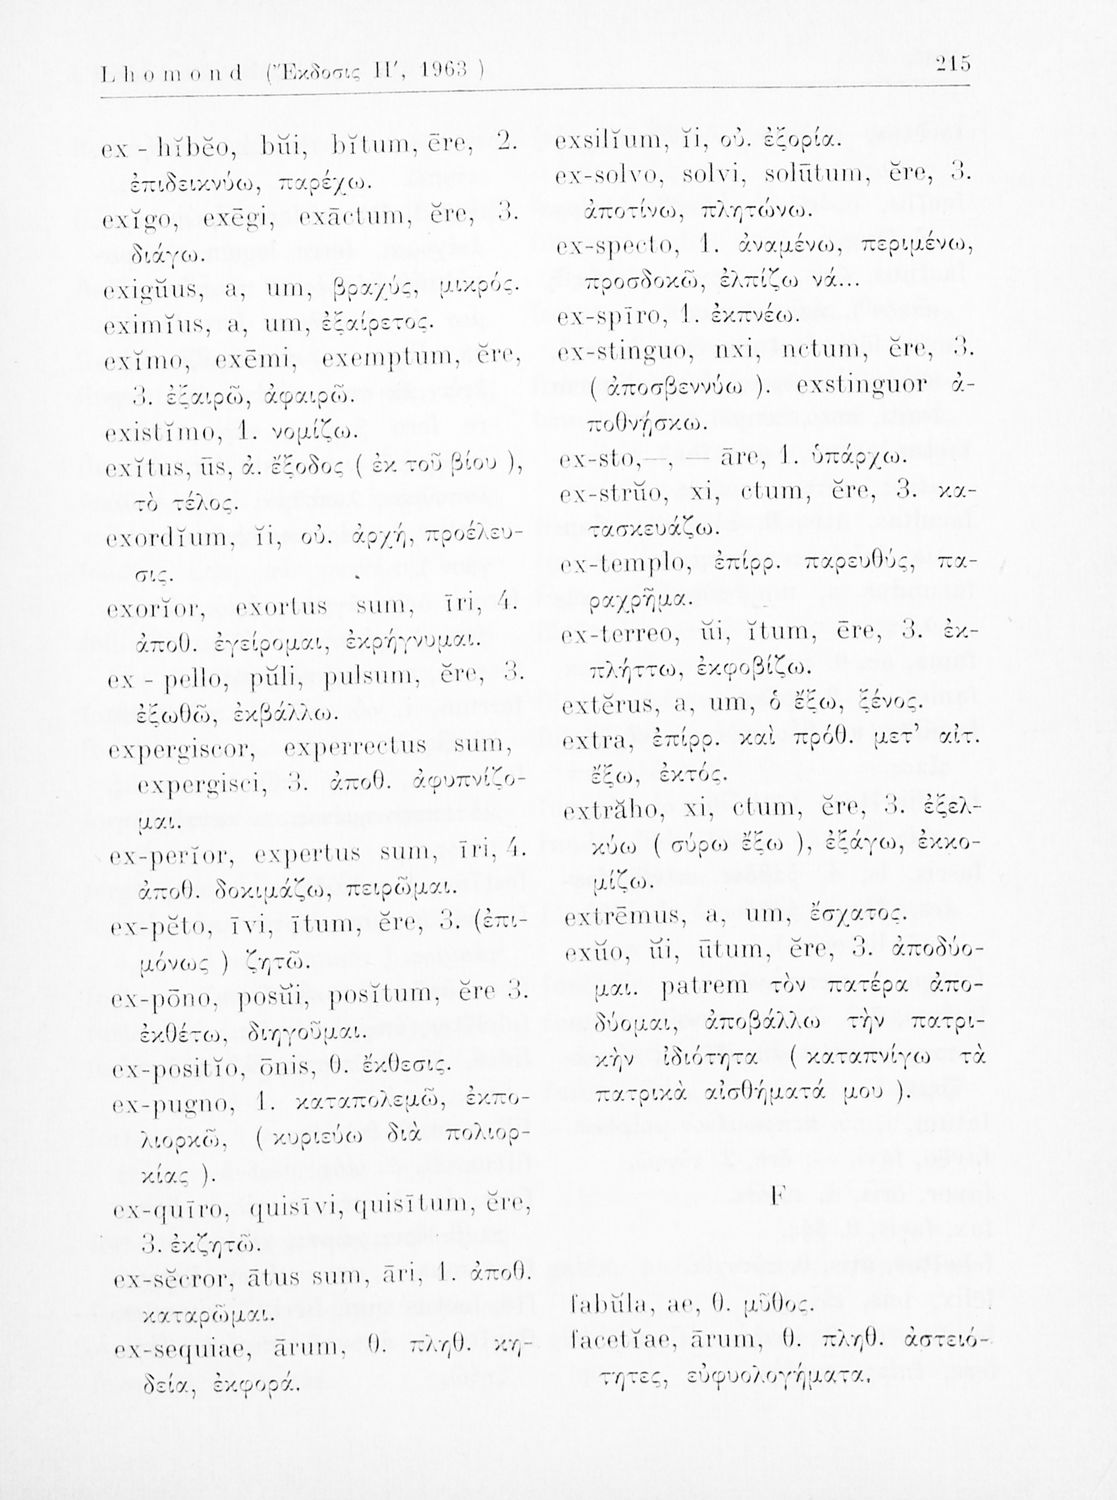 Lhomond (Ἔκδοσις Η′, 1963 )
215
ex - hĭbĕo, bŭi, bĭtum, ēre, 2.
ἐπιδεικνύω, παρέχω.
exĭgo, exēgi, exāctum, ĕre, 3.
διάγω.
exigŭus, a, um, βραχύς, μικρός.
eximĭus, a, um, ἐξαίρετος.
exĭmo, exēmi, exemptum, ĕre,
3. ἐξαιρῶ, ἀφαιρῶ.
existĭmo, 1. νομίζω.
exĭtus, ūs, ἀ. ἔξοδος ( ἐκ τοῦ βίου ),
τὸ τέλος.
exordĭum, ĭi, οὐ. ἀρχή, προέλευ-
σις.
exorĭor, exortus sum, īri, 4.
ἀποθ. ἐγείρομαι, ἐκρήγνυμαι.
ex - pello, pŭli, pulsum, ĕre, 3.
ἐξωθῶ, ἐκβάλλω.
expergiscor, experrectus sum,
expergisci, 3. ἀποθ. ἀφυπνίζο-
μαι.
ex-perĭor, expertus sum, īri, 4.
ἀποθ. δοκιμάζω, πειρῶμαι.
ex-pĕto, īvi, ītum, ĕre, 3. (ἐπι-
μόνως ) ζητῶ.
ex-pōno, posŭi, posĭtum, ĕre 3.
ἐκθέτω, διηγοῦμαι.
ex-positĭo, ōnis, θ. ἔκθεσις.
ex-pugno, 1. καταπολεμῶ, ἐκπο-
λιορκῶ, ( κυριεύω διὰ πολιορ-
κίας ).
ex-quīro, quisīvi, quisītum, ĕre,
3. ἐκζητῶ.
ex-sĕcror, ātus sum, āri, 1. ἀποθ.
καταρῶμαι.
ex-sequiae, ārum, θ. πληθ. κη-
δεία, ἐκφορά.
exsilĭum, ĭi, οὐ. ἐξορία.
ex-solvo, solvi, solūtum, ĕre, 3.
ἀποτίνω, πληρώνω.
ex-specto, 1. ἀναμένω, περιμένω,
προσδοκῶ, ἐλπίζω νά...
ex-spīro, 1. ἐκπνέω.
ex-stinguo, nxi, nctum, ĕre, 3.
( ἀποσβεννύω ). exstinguor ἀ-
ποθνήσκω.
ex-sto,—, — āre, 1. ὑπάρχω.
ex-strŭo, xi, ctum, ĕre, 3. κα-
τασκευάζω.
ex-templo, ἐπίρρ. παρευθύς, πα-
ραχρῆμα.
ex-terreo, ŭi, ĭtum, ēre, 3. ἐκ-
πλήττω, ἐκφοβίζω.
extĕrus, a, um, ὁ ἔξω, ξένος.
extra, ἐπίρρ. καὶ πρόθ. μετ’ αἰτ.
ἔξω, ἐκτός.
extrăho, xi, ctum, ĕre, 3. ἐξελ-
κύω ( σύρω ἔξω ), ἐξάγω, ἐκκο-
μίζω.
extrēmus, a, um, ἔσχατος.
exŭo, ŭi, ūtum, ĕre, 3. ἀποδύο-
μαι. patrem τὸν πατέρα ἀπο-
δύομαι, ἀποβάλλω τὴν πατρι-
κὴν ἰδιότητα ( καταπνίγω τὰ
πατρικὰ αἰσθήματά μου ).
F
fabŭla, ae, θ. μῦθος.
facetĭae, ārum, θ. πληθ. ἀστειό-
τητες, εὐφυολογήματα.